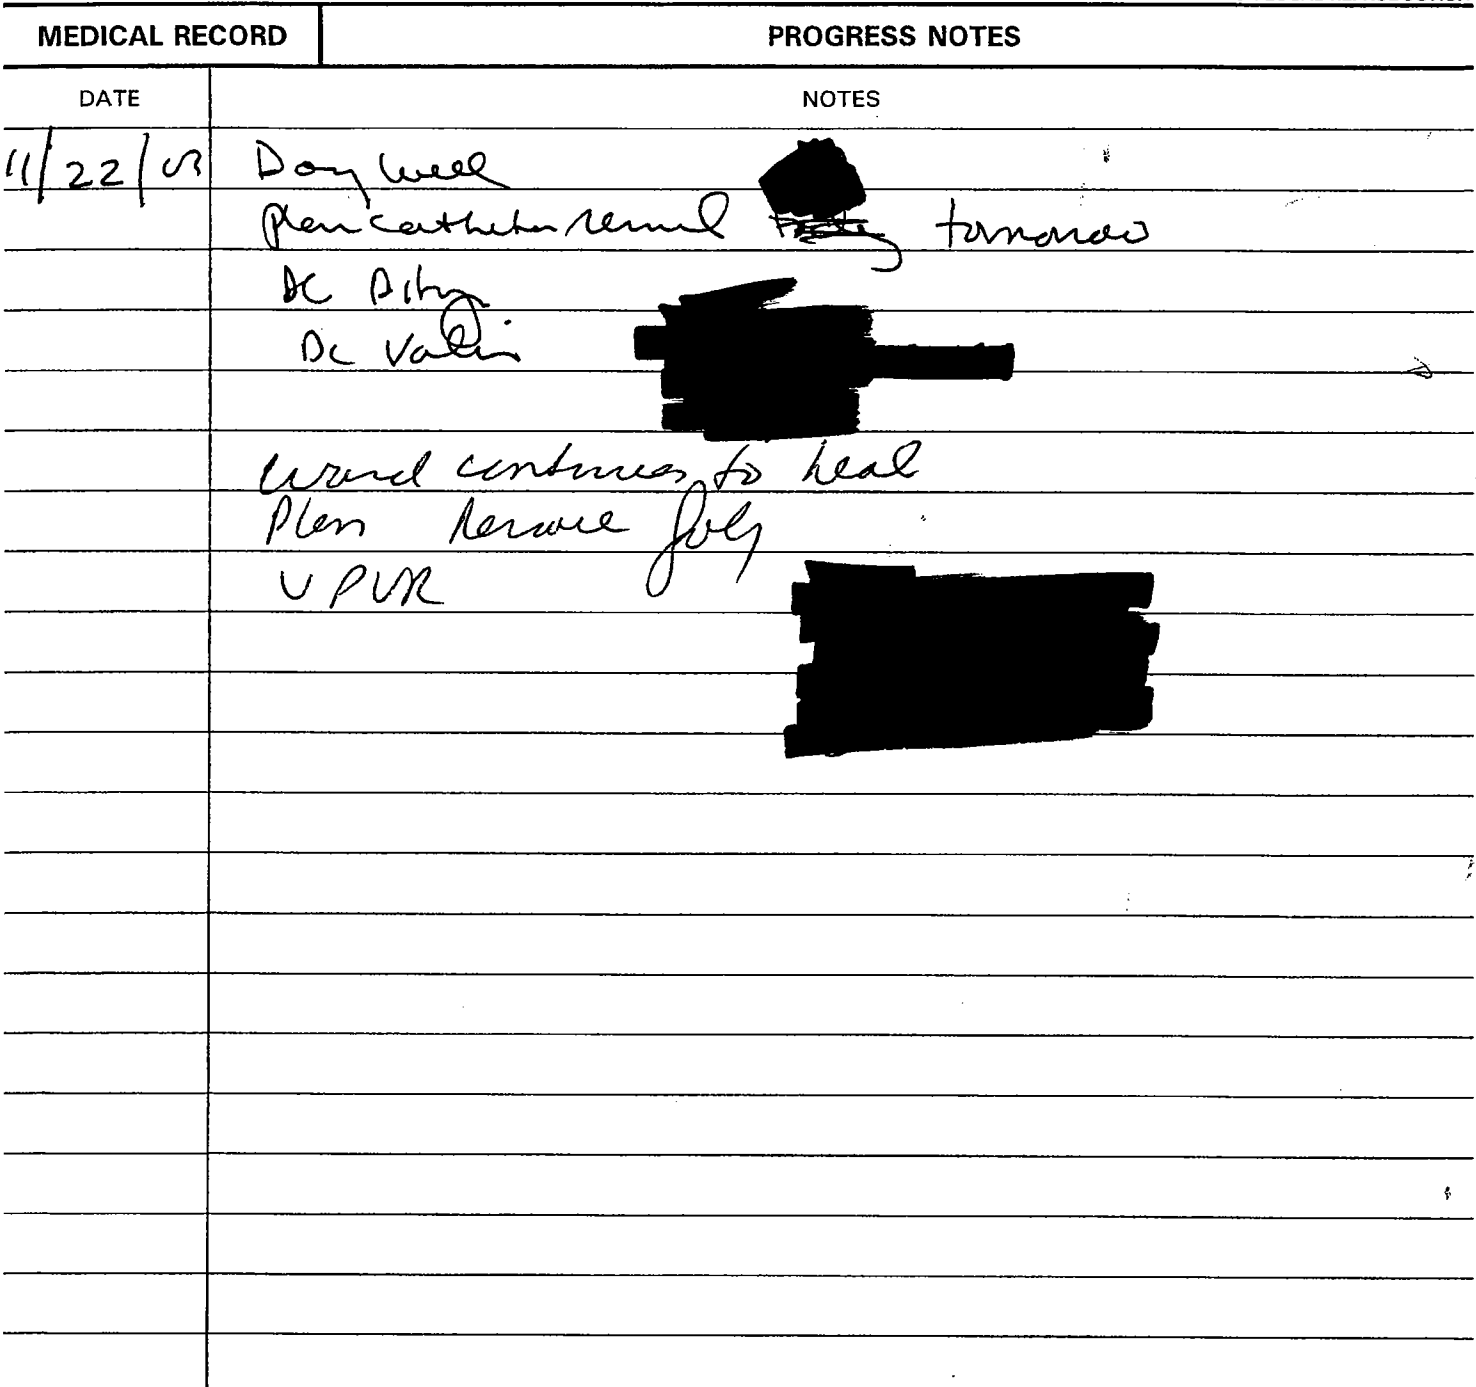 MEDICAL RECORD PROGRESS NOTES
DATE NOTES
11/22/03 Doing well
plan catheter removal tomorrow
DC
DC
wound continues to heal
Plan Remove foley
PVR